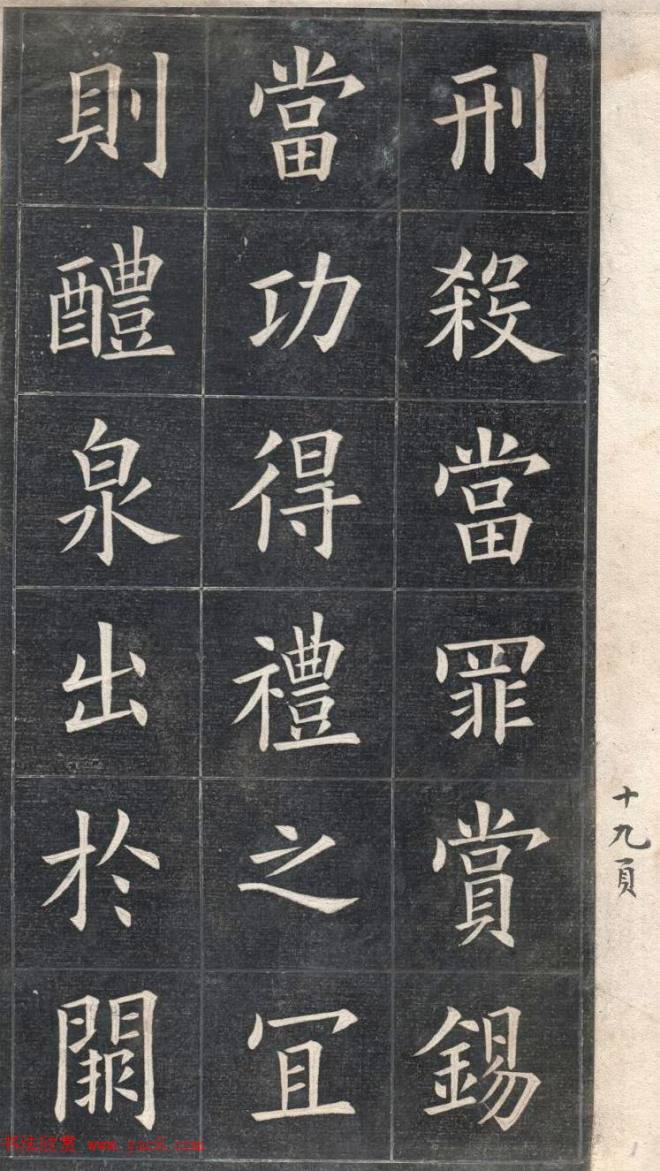 刑殺當罪賞錫
當功得禮之冝
則醴泉出於闕
十九頁
书法欣赏 www.yac8.com